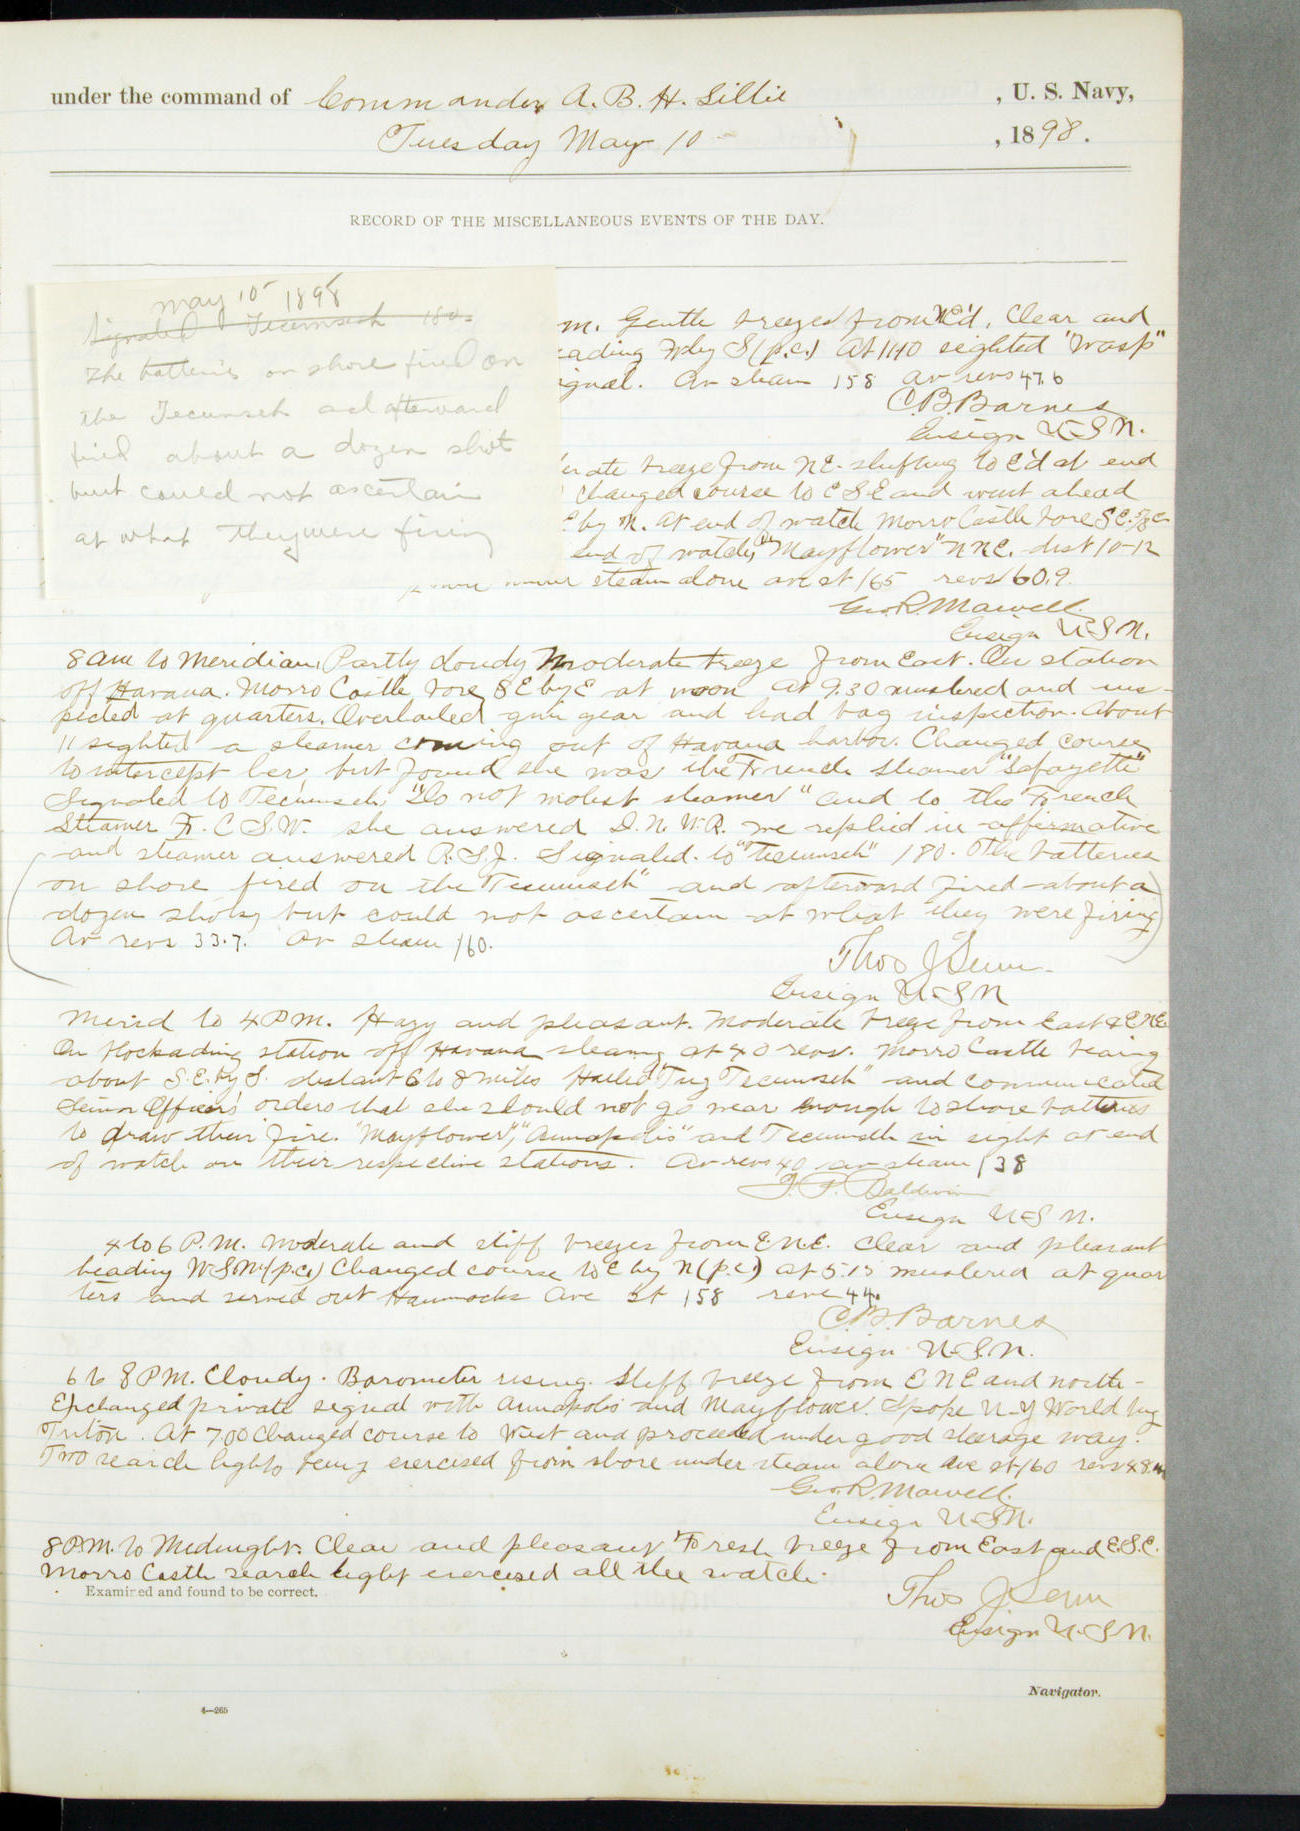 under the command of Commander A. B. H. Lillie , U. S. Navy,
Tuesday May 10 , 1898.
RECORD OF THE MISCELLANEOUS EVENTS OF THE DAY.
May 10 1898
Signaled Tecumseh 180.
The batteries on shore fired on
the Tecumseh and afterward
fired about a dozen shots
but could not ascertain
at what they were firing
m. Gentle breezes from NE'd. Clear and
eading N'ly S (p.c.) At 11.40 sighted "Wasp"
ignal. Av steam 158 av revs 47.6
C.B. Barnes
Ensign U.S.N.
erate breeze from NE. shifting to E'd at end
changed course to ESE and went ahead
by N. At end of watch Morro Castle bore SE.
end of watch, "Mayflower" NNE. dist 10-12
steam alone ave st 165 revs 60.9.
Geo. R. Marvell
Ensign U.S.N.
8 am to Meridian, Partly cloudy Moderate breeze from East. On station
off Havana. Morro Castle bore SE by E at noon At 9.30 mustered and ins-
pected at quarters. Overhauled gun gear and had bag inspection. About
11 sighted a steamer coming out of Havana harbor. Changed course
to intercept her, but found she was the French steamer "Lafayette"
Signaled to Tecumseh "Do not molest steamer" and to the French
Steamer F. C. S. W. she answered D. N. W. R. we replied in affirmative
and steamer answered R. S. J. Signaled to "Tecumseh" 180. The batteries
on shore fired on the "Tecumseh" and afterward fired about a
dozen shots but could not ascertain at what they were firing
Av revs 33.7. Av steam 160.
Thos J Senn
Ensign U.S.N
Merid to 4 P.M. Hazy and pleasant. Moderate breeze from East & ENE
On blockading station off Havana steamg at 40 revs. Morro Castle bearing
about S.E. by S. distant 6 to 8 miles Hailed "Tug Tecumseh" and communicated
Senior Officers' orders that she should not go near enough to shore batteries
to draw their fire. "Mayflower", "Annapolis" and Tecumseh in sight at end
of watch on their respective stations. Av revs 40 av steam 138
F. P. Baldwin
Ensign U.S.N.
4 to 6 P.M. Moderate and stiff breezes from E.N.E. Clear and pleasant
heading WSW (p.c.) Changed course to E by N (p.c.) at 5.15 mustered at quar
ters and served out Hammocks Ave st 158 revs 44.
C.B. Barnes
Ensign U.S.N.
6 to 8 PM. Cloudy. Barometer rising. Stiff breeze from ENE and north-
Exchanged private signal with Annapolis and Mayflower. Spoke N.Y World tug
Triton. At 7.00 Changed course to West and proceeded under good steerage way.
Two search lights being exercised from shore under steam alone Ave st 160 revs 48.
Geo. R. Marvell
Ensign U.S.N.
8 P.M. to Midnight: Clear and pleasant Fresh breeze from East and E.S.E.
Morro Castle search light exercised all the watch.
Examined and found to be correct.
Thos J Senn
Ensign U.S.N.
Navigator.
4—265